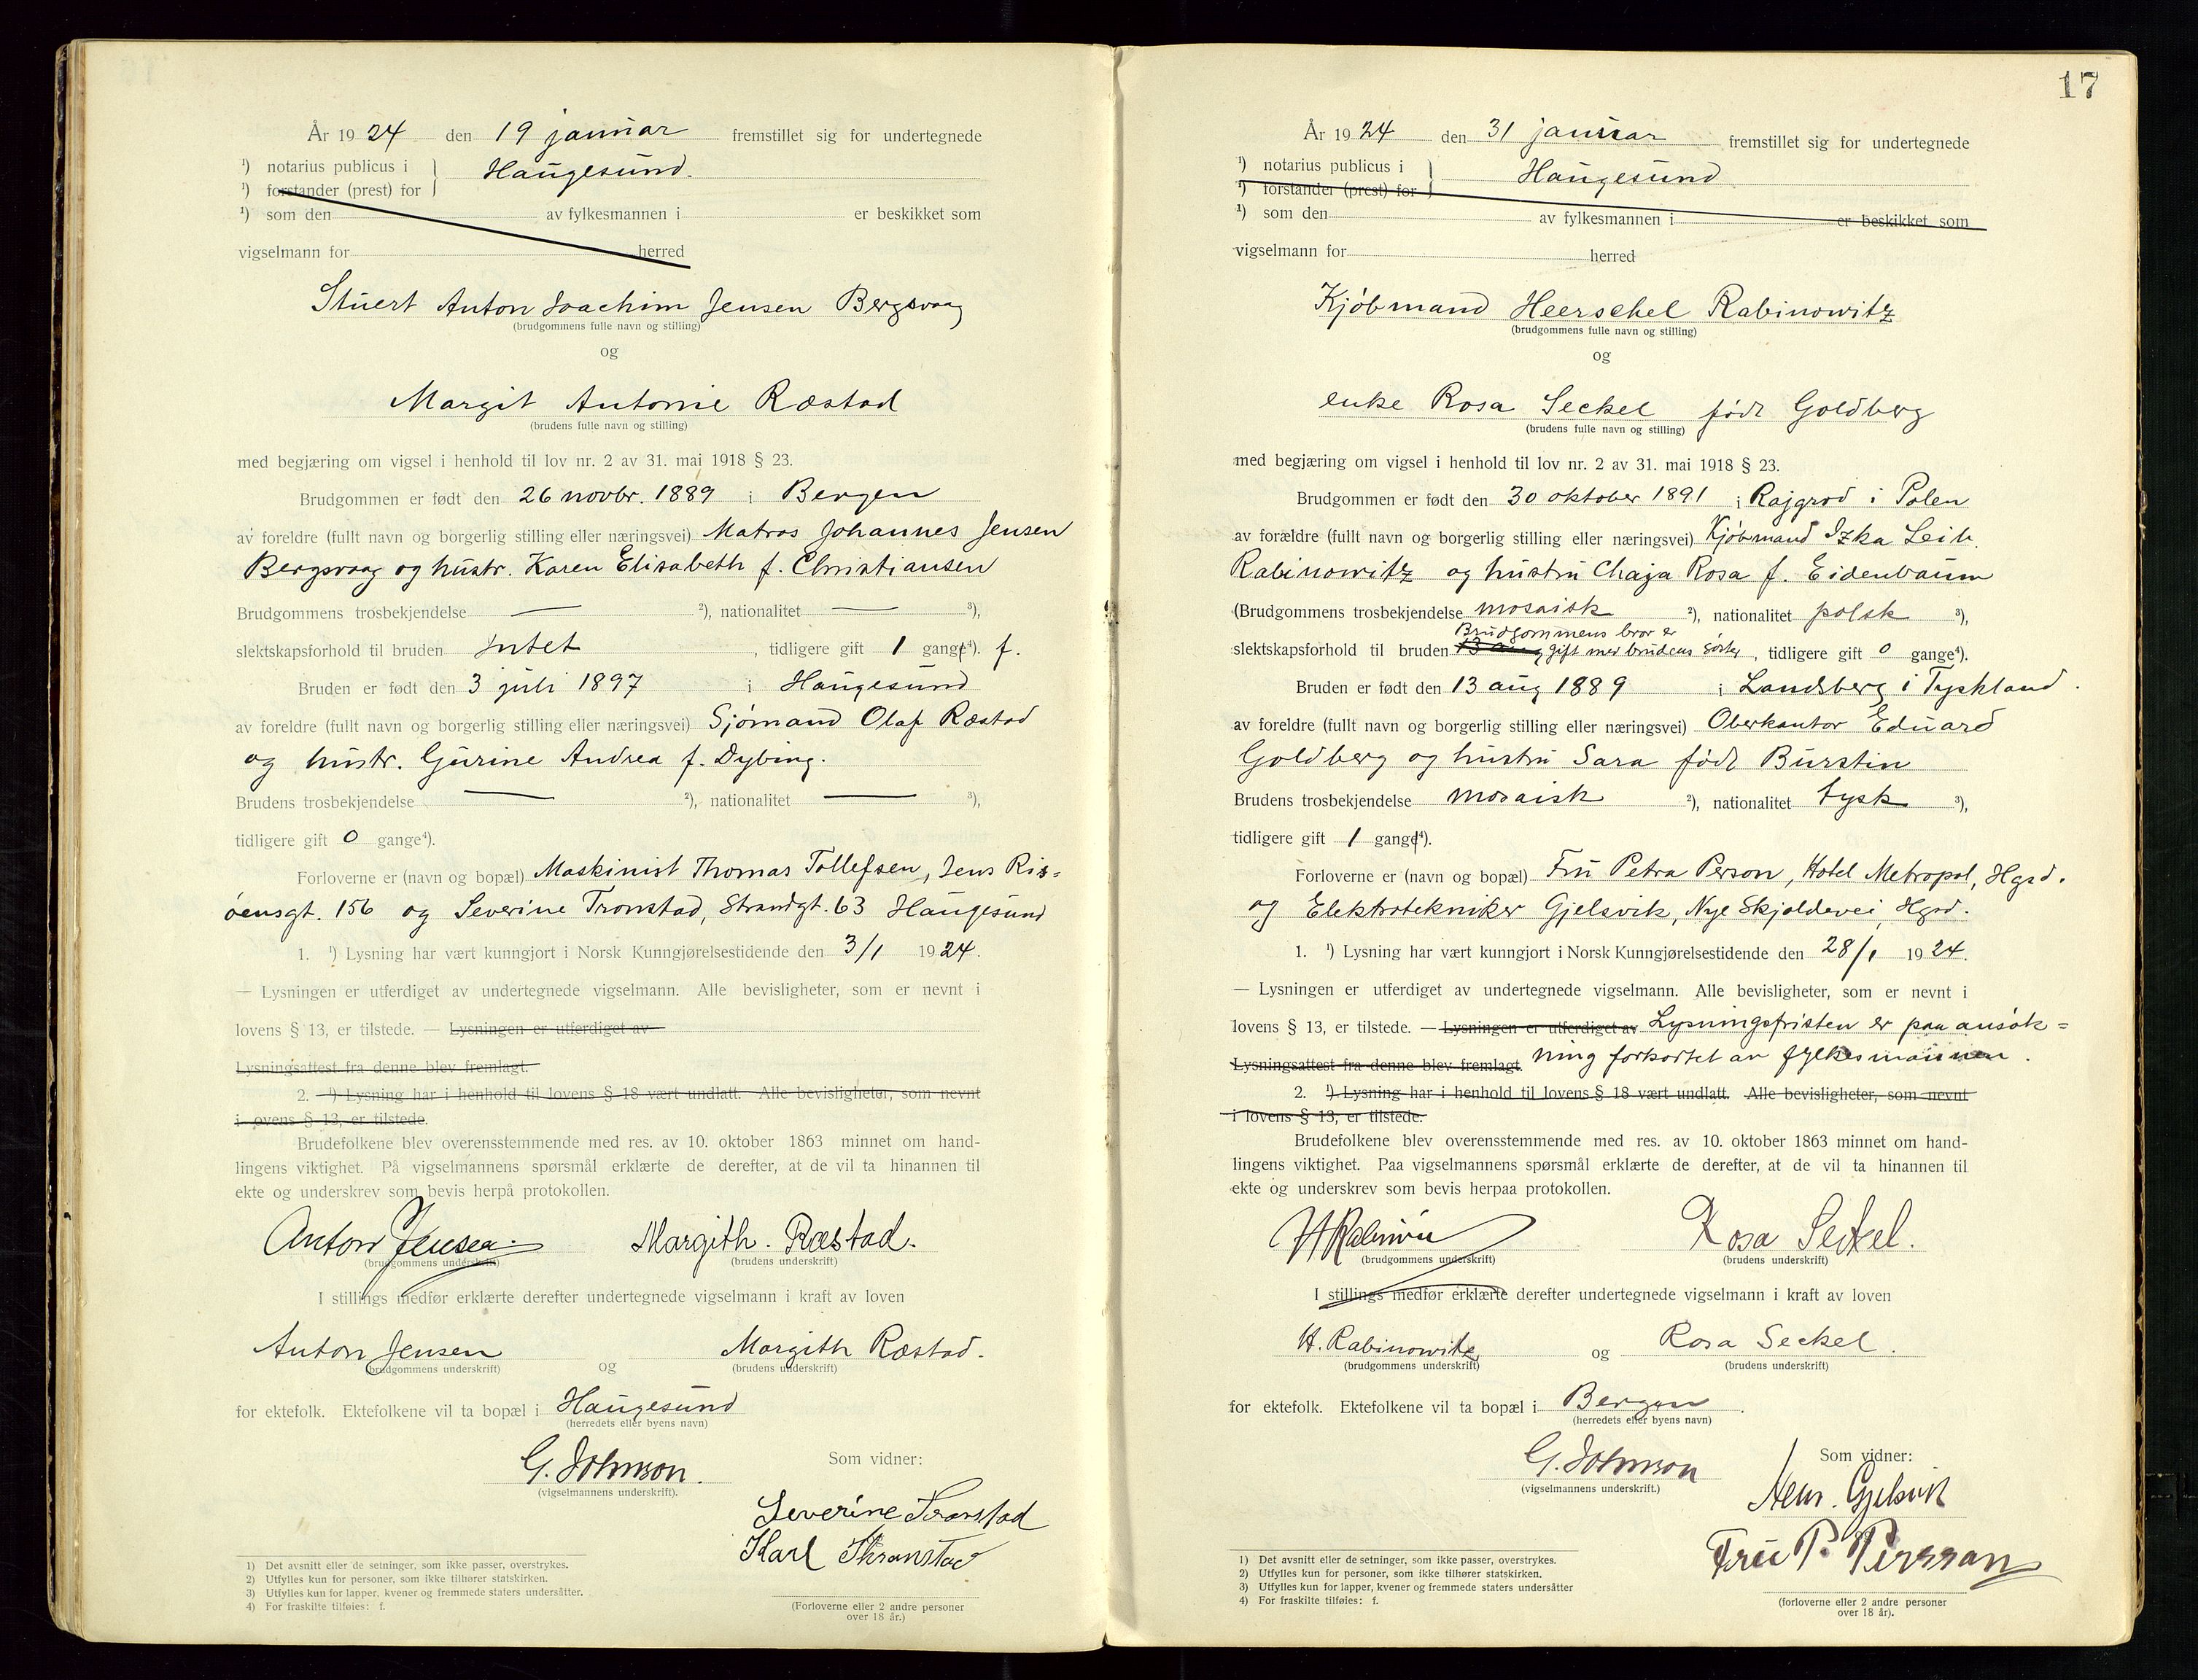 År 1924 den 19 januar fremstillet sig for undertegnede
¹) notarius publicus i } Haugesund.
¹) forstander (prest) for
¹) som den av fylkesmannen i er beskikket som
vigselmann for herred
Stuert Anton Joachim Jensen Bergsvaag
(brudgommens fulle navn og stilling)
og
Margit Antonie Ræstad
(brudens fulle navn og stilling)
med begjæring om vigsel i henhold til lov nr. 2 av 31. mai 1918 § 23.
Brudgommen er født den 26 novbr. 1889 i Bergen
av foreldre (fullt navn og borgerlig stilling eller næringsvei) Matros Johannes Jensen
Bergsvaag og hustr. Karen Elisabeth f. Christiansen
Brudgommens trosbekjendelse — ²), nationalitet — ³),
slektskapsforhold til bruden Intet, tidligere gift 1 gange⁴). f.
Bruden er født den 3 juli 1897 i Haugesund
av foreldre (fullt navn og borgerlig stilling eller næringsvei) Sjømand Olaf Ræstad
og hustr. Gurine Andrea f. Dybing.
Brudens trosbekjendelse — ²), nationalitet — ³),
tidligere gift 0 gange⁴).
Forloverne er (navn og bopæl) Maskinist Thomas Tollefsen, Jens Ris=
øensgt. 156 og Severine Tronstad, Strandgt. 63 Haugesund
1. ¹) Lysning har vært kunngjort i Norsk Kunngjørelsestidende den 3/1 1924.
— Lysningen er utferdiget av undertegnede vigselmann. Alle bevisligheter, som er nevnt i
lovens § 13, er tilstede. — Lysningen er utferdiget av
Lysningsattest fra denne blev fremlagt.
2. ¹) Lysning har i henhold til lovens § 18 vært undlatt. Alle bevisligheter, som nevnt
i lovens § 13, er tilstede.
Brudefolkene blev overensstemmende med res. av 10. oktober 1863 minnet om hand-
lingens viktighet. På vigselmannens spørsmål erklærte de derefter, at de vil ta hinannen til
ekte og underskrev som bevis herpå protokollen.
Anton Jensen. Margith. Ræstad.
(brudgommens underskrift) (brudens underskrift)
I stillings medfør erklærte derefter undertegnede vigselmann i kraft av loven
Anton Jensen og Margith Ræstad.
(brudgommens underskrift) (brudens underskrift)
for ektefolk. Ektefolkene vil ta bopæl i Haugesund
(herredets eller byens navn)
G. Johnson.
(vigselmannens underskrift).
Som vidner:
Severine Tronstad
Karl Thranstad
(Forloverne eller 2 andre personer
over 18 år.)
1) Det avsnitt eller de setninger, som ikke passer, overstrykes.
2) Utfylles kun for personer, som ikke tilhører statskirken.
3) Utfylles kun for lapper, kvener og fremmede staters undersåtter.
4) For fraskilte tilføies: f.
17
År 1924 den 31 januar fremstillet sig for undertegnede
¹) notarius publicus i } Haugesund
¹) forstander (prest) for
¹) som den av fylkesmannen i er beskikket som
vigselmann for herred
Kjøbmand Heerschel Rabinowitz
(brudgommens fulle navn og stilling)
og
enke Rosa Seckel født Goldberg
(brudens fulle navn og stilling)
med begjæring om vigsel i henhold til lov nr. 2 av 31. mai 1918 § 23.
Brudgommen er født den 30 oktober 1891 i Rajgrod i Polen
av forældre (fullt navn og borgerlig stilling eller næringsvei) Kjøbmand Izka Leib
Rabinowitz og hustru Chaja Rosa f. Eidenbaum
(Brudgommens trosbekjendelse mosaisk ²), nationalitet polsk ³),
Brudgommens bror er
slektskapsforhold til bruden 13 aug gift med brudens søster, tidligere gift 0 gange⁴).
Bruden er født den 13 aug 1889 i Landsberg i Tyskland.
av foreldre (fullt navn og borgerlig stilling eller næringsvei) Oberkantor Eduard
Goldberg og hustru Sara født Burstin
Brudens trosbekjendelse mosaisk ²), nationalitet tysk ³),
tidligere gift 1 gange⁴).
Forloverne er (navn og bopæl) Fru Petra Person, Hotel Metropol, Hgsd.
og Elektrotekniker Gjelsvik, Nye Skjoldevei, Hgsd.
1. ¹) Lysning har vært kunngjort i Norsk Kunngjørelsestidende den 28/1 1924.
— Lysningen er utferdiget av undertegnede vigselmann. Alle bevisligheter, som er nevnt i
lovens § 13, er tilstede. — Lysningen er utferdiget av Lysningsfristen er paa ansøk=
Lysningsattest fra denne blev fremlagt. ning forkortet av fylkesmannen.
2. ¹) Lysning har i henhold til lovens § 18 vært undlatt. Alle bevisligheter, som nevnt
i lovens § 13, er tilstede.
Brudefolkene blev overensstemmende med res. av 10. oktober 1863 minnet om hand-
lingens viktighet. Paa vigselmannens spørsmål erklærte de derefter, at de vil ta hinannen til
ekte og underskrev som bevis herpaa protokollen.
Rosa Seckel.
(brudgommens underskrift) (brudens underskrift)
I stillings medfør erklærte derefter undertegnede vigselmann i kraft av loven
H. Rabinowitz og Rosa Seckel.
(brudgommens underskrift) (brudens underskrift)
for ektefolk. Ektefolkene vil ta bopæl i Bergen.
(herredets eller byens navn)
G. Johnson
(vigselmannens underskrift.)
Som vidner:
Gjelsvik
Fru P. Perssan
(forloverne eller 2 andre personer
over 18 år).
1) Det avsnitt eller de setninger, som ikke passer, overstrykes.
2) Utfylles kun for personer, som ikke tilhører statskirken.
3) Utfylles kun for lapper, kvener og fremmede staters undersåtter
4) For fraskilte tilføies: f.